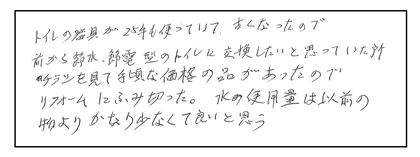 トイレの器具が25年も使っていて、古くなったので
前から節水、節電型のトイレに交換したいと思っていた所
チラシを見て手頃な価格の品があったので
リフォームにふみ切った。水の使用量は以前の
物よりかなり少なくて良いと思う